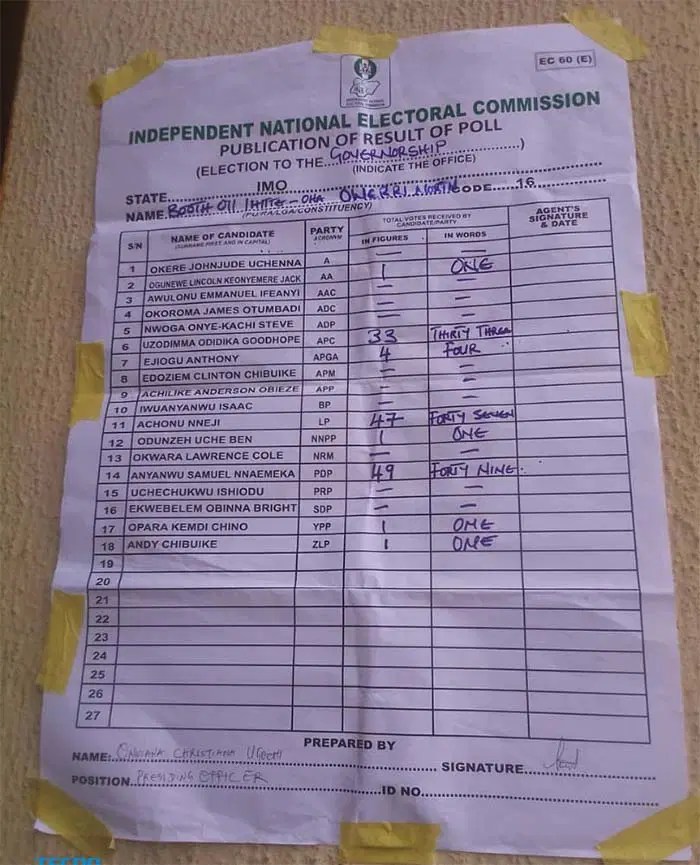 EC 60 (E)
INDEPENDENT NATIONAL ELECTORAL COMMISSION
PUBLICATION OF RESULT OF POLL
(ELECTION TO THE...GOVERNORSHIP...)
(INDICATE THE OFFICE)
STATE...IMO...
NAME. BOOTH 011 IHITTE - OHA OWERRI NORTH CODE...16...
(PU/RA/LGA/CONSTITUENCY)
S/N NAME OF CANDIDATE (SURNAME FIRST AND IN CAPITAL) PARTY ACRONYM TOTAL VOTES RECEIVED BY CANDIDATE/PARTY AGENT'S SIGNATURE & DATE
IN FIGURES IN WORDS
1 OKERE JOHNJUDE UCHENNA A — —
2 OGUNEWE LINCOLN KEONYEMERE JACK AA 1 ONE
3 AWULONU EMMANUEL IFEANYI AAC — —
4 OKOROMA JAMES OTUMBADI ADC — —
5 NWOGA ONYE-KACHI STEVE ADP — —
6 UZODIMMA ODIDIKA GOODHOPE APC 33 THIRTY THREE
7 EJIOGU ANTHONY APGA 4 FOUR
8 EDOZIEM CLINTON CHIBUIKE APM — —
9 ACHILIKE ANDERSON OBIEZE APP — —
10 IWUANYANWU ISAAC BP — —
11 ACHONU NNEJI LP 47 FORTY SEVEN
12 ODUNZEH UCHE BEN NNPP 1 ONE
13 OKWARA LAWRENCE COLE NRM — —
14 ANYANWU SAMUEL NNAEMEKA PDP 49 FORTY NINE
15 UCHECHUKWU ISHIODU PRP — —
16 EKWEBELEM OBINNA BRIGHT SDP — —
17 OPARA KEMDI CHINO YPP 1 ONE
18 ANDY CHIBUIKE ZLP 1 ONE
19
20
21
22
23
24
25
26
27
PREPARED BY
NAME: CHRISTIANA UGOCHI SIGNATURE
POSITION. PRESIDING OFFICER ID NO.
TECNO